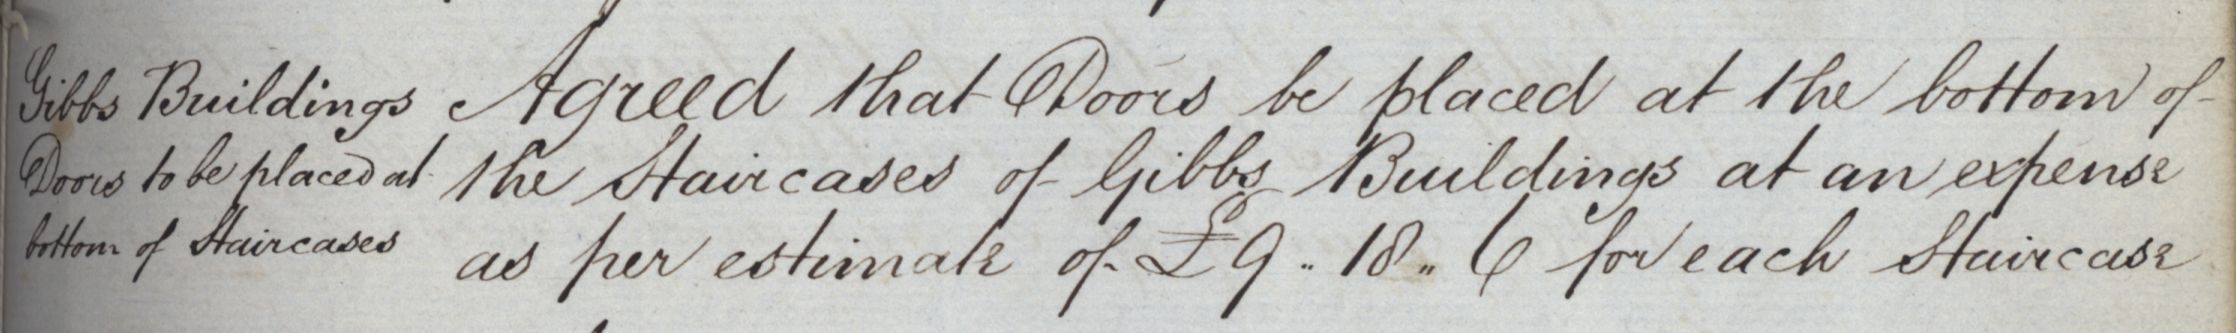 Gibbs Buildings
Doors to be placed at
bottom of Staircases
Agreed that Doors be placed at the bottom of
the Staircases of Gibbs Buildings at an expense
as per estimate of £9 .. 18 .. 6 for each Staircase